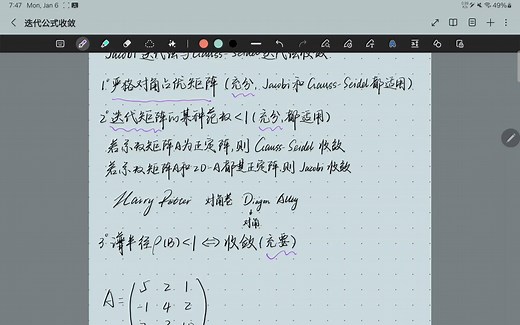 7:47 Mon, Jan 6
49%
迭代公式收敛
Jacobi 迭代法与 Gauss-Seidel 迭代法收敛
1° 严格对角占优矩阵 (充分, Jacobi 和 Gauss-Seidel 都适用)
2° 迭代矩阵的某种范数<1 (充分, 都适用)
若系数矩阵A为正定阵, 则 Gauss-Seidel 收敛
若系数矩阵A和2D-A都是正定阵, 则 Jacobi 收敛
Harry Potter 对角巷 Diagon Alley
对角
3° 谱半径 ρ(B)<1 ⇔ 收敛 (充要)
5 2 1
A= -1 4 2